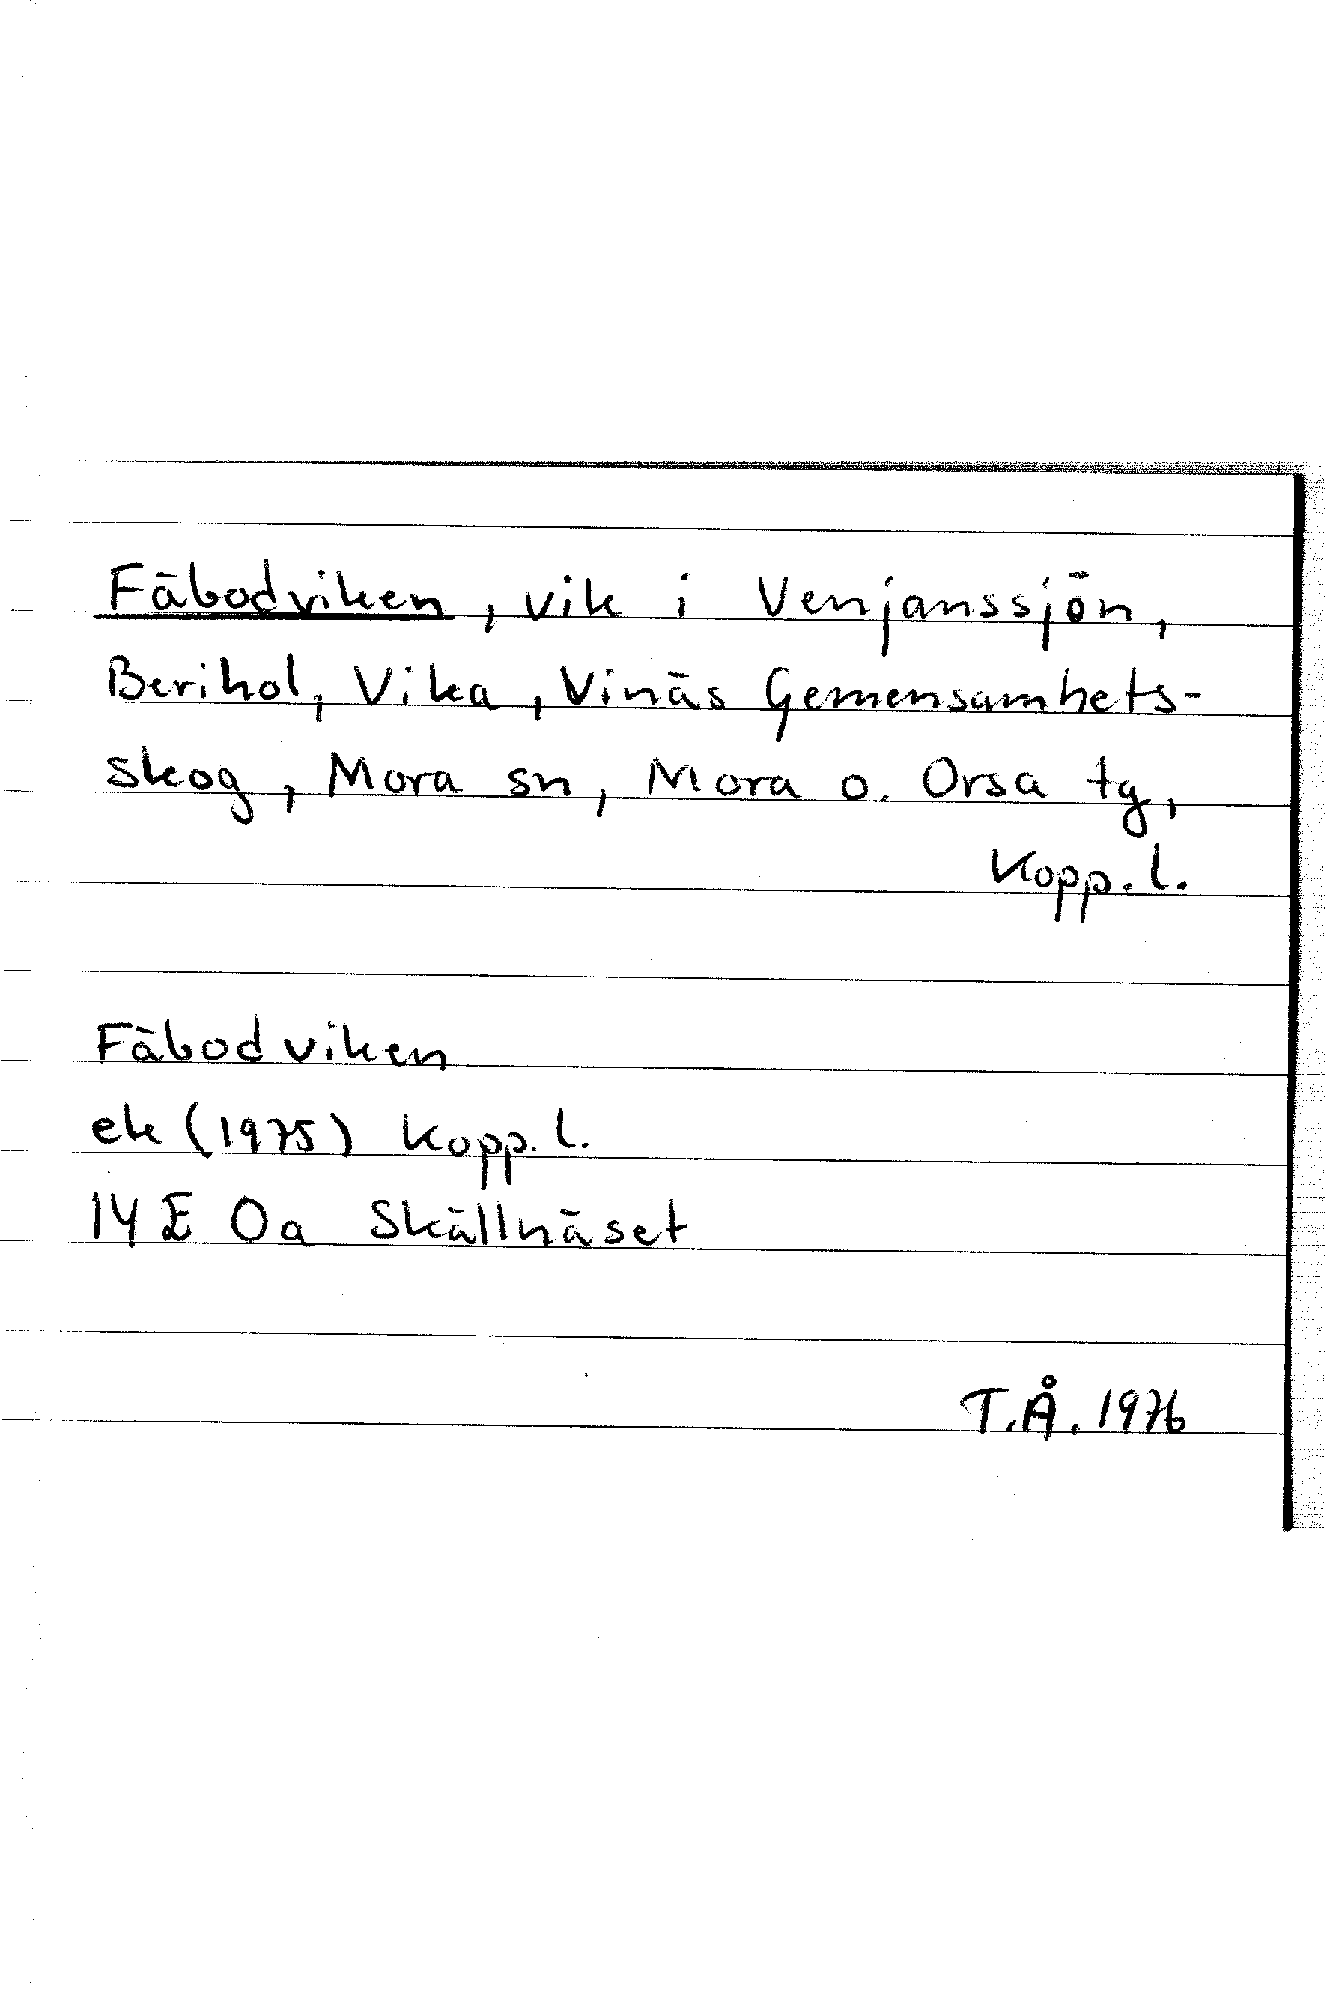 Fäbodviken, vik i Venjanssjön,
Berikol, Vika, Vinäs Gemensamhets-
skog, Mora sn, Mora o. Orsa tg,
Kopp. l.
Fäbodviken
ek (1975) Kopp. l.
14 E 0a Skällnäset
T.Å. 1976